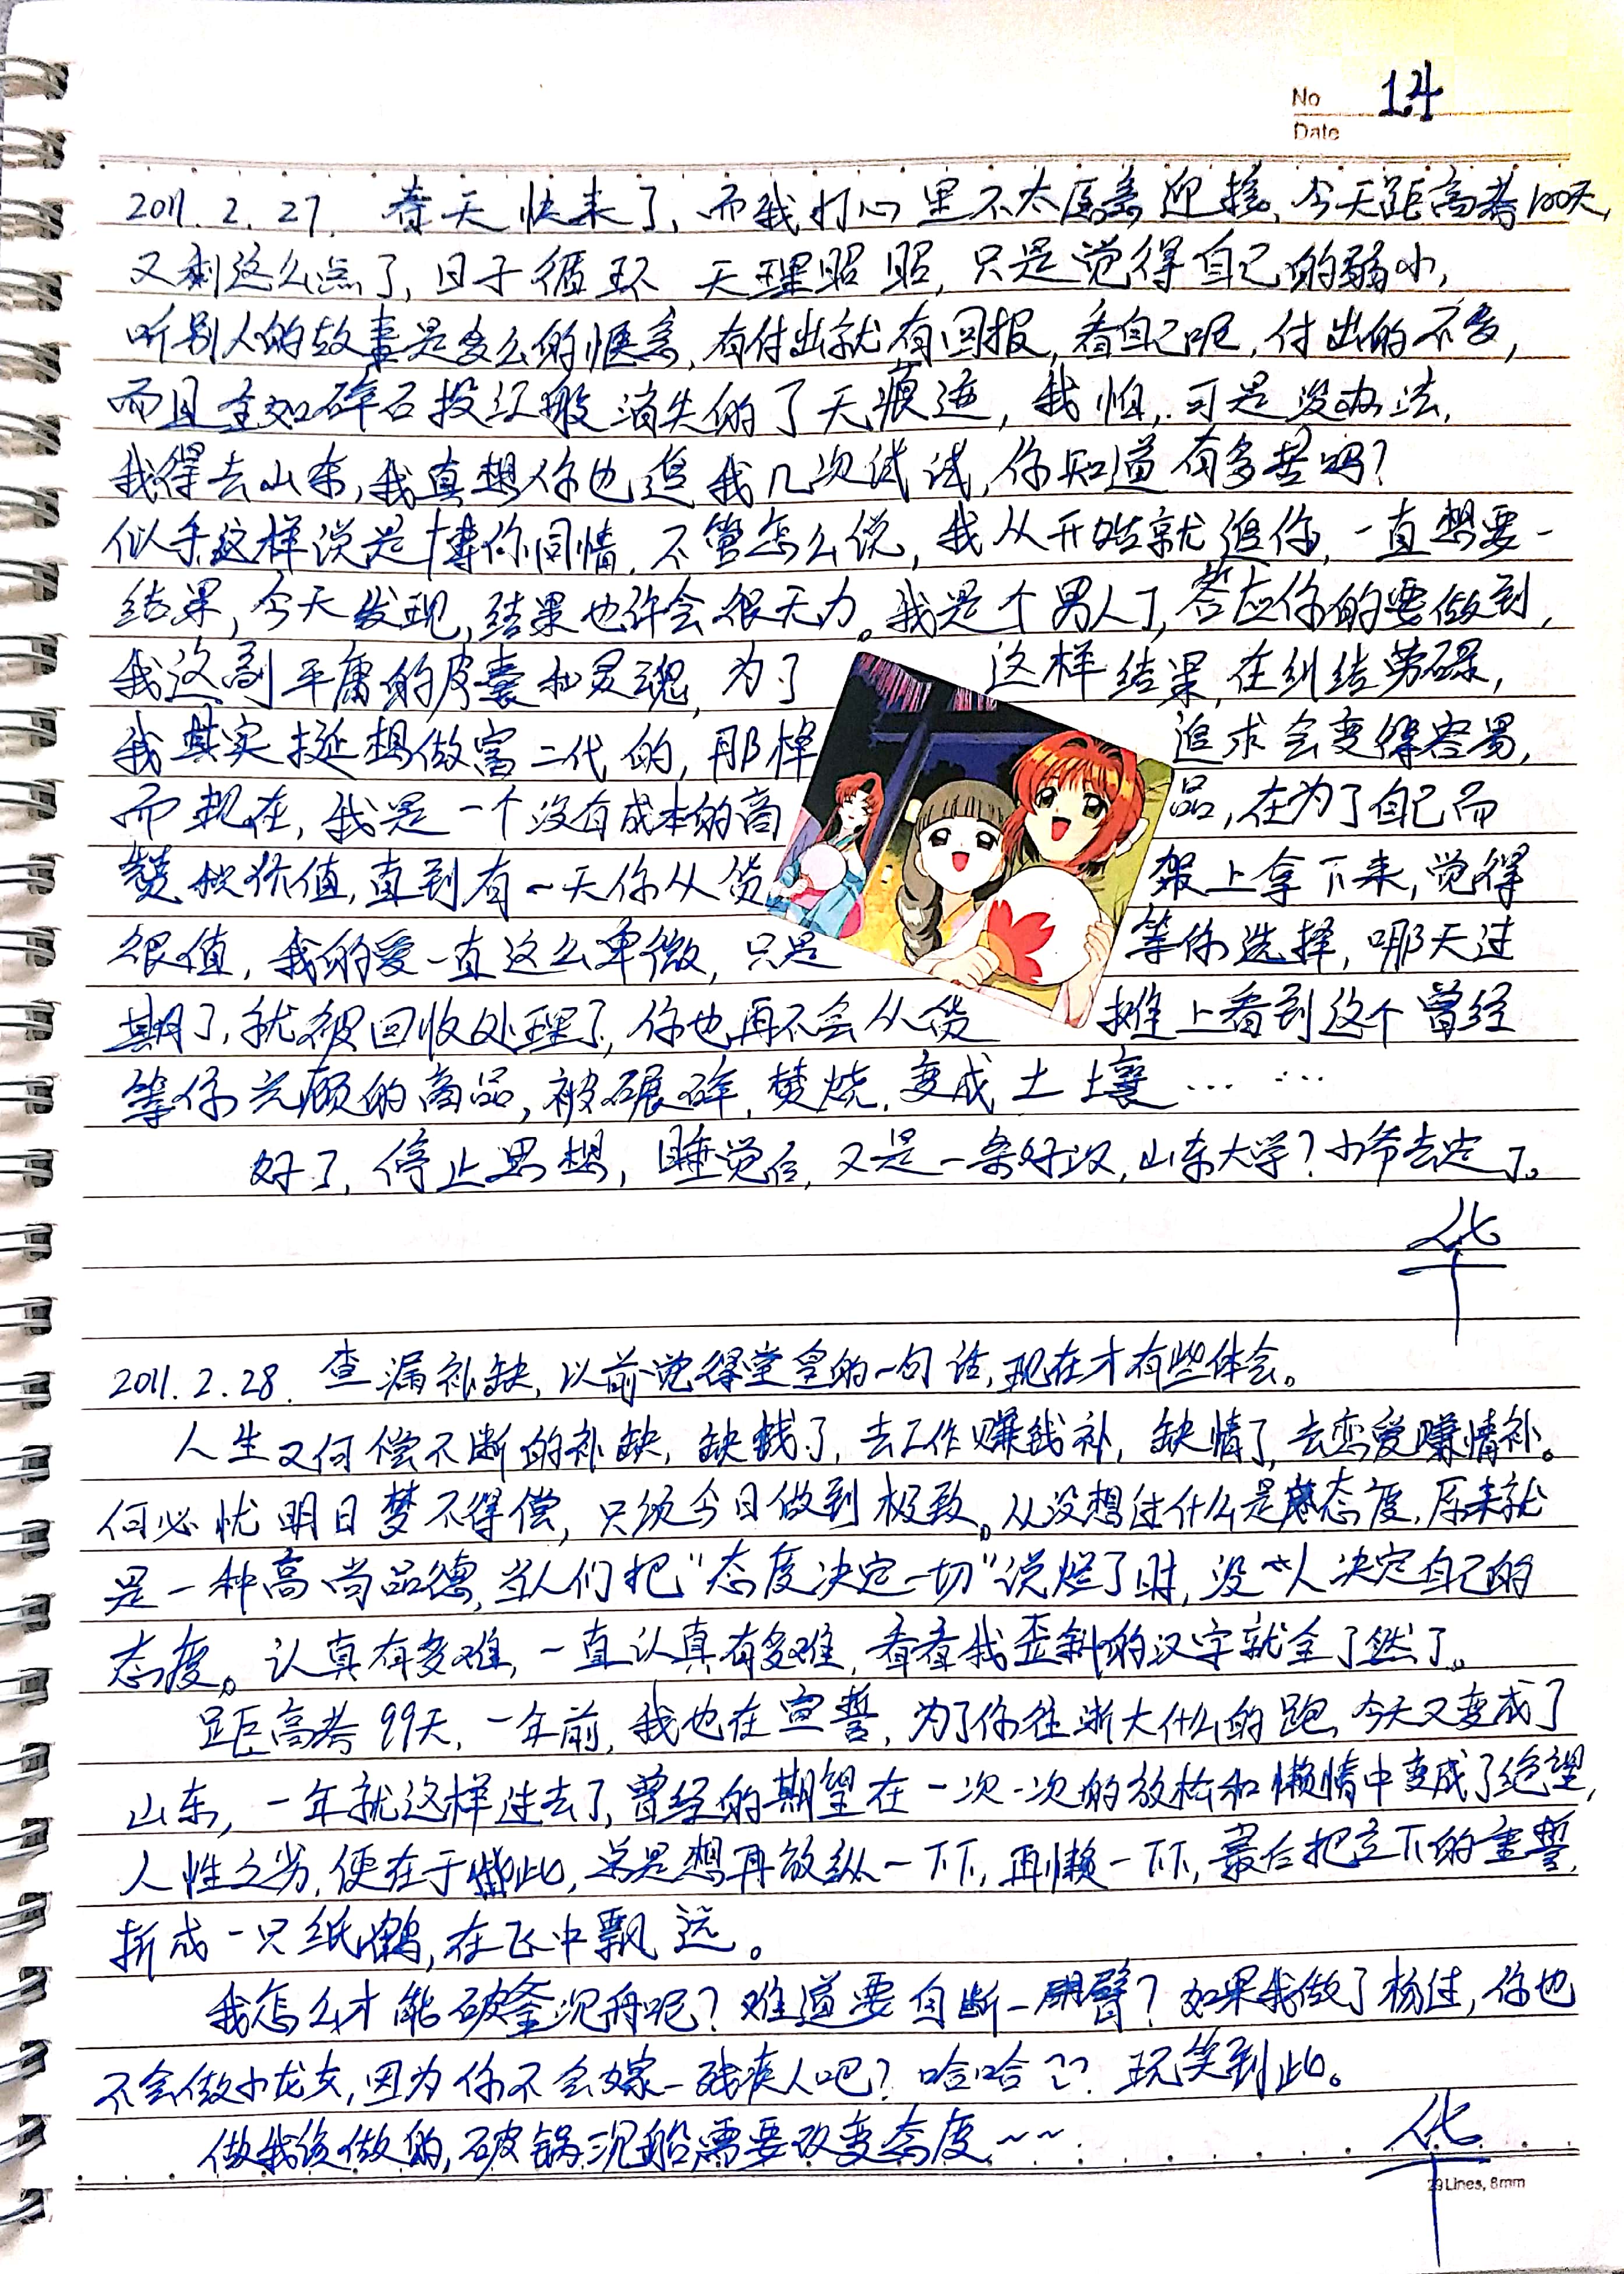 No 14
Date
2011.2.27. 春天快来了,而我打心里不太愿意迎接,今天距高考100天,
又剩这么点了,日子循环 天理昭昭,只是觉得自己的弱小,
听别人的故事是多么的惬意,有付出就有回报,看自己呢,付出的不多,
而且全如碎石投江般消失的了无痕迹,我怕,可是没办法,
我得去山东,我真想你也追我几次试试,你知道有多苦吗?
似乎这样说是博你同情,不管怎么说,我从开始就追你,一直想要一
结果,今天发现,结果也许会很无力。我是个男人了,答应你的要做到,
我这副平庸的皮囊和灵魂,为了这样结果,在纠结劳碌,
我其实挺想做富二代的,那样追求会变得容易,
而现在,我是一个没有成本的商品,在为了自己而
攒些价值,直到有一天你从货架上拿下来,觉得
很值,我的爱一直这么卑微,只是等你选择,哪天过
期了,就被回收处理了,你也再不会从货摊上看到这个曾经
等你光顾的商品,被碾碎,焚烧,变成土壤……
好了,停止思想,睡觉后,又是一条好汉,山东大学?小爷去定了。
华
2011.2.28. 查漏补缺,以前觉得堂皇的一句话,现在才有些体会。
人生又何偿不断的补缺,缺钱了,去工作赚钱补,缺情了,去恋爱赚情补。
何必忧明日梦不得偿,只须今日做到极致。从没想过什么是态度,原来就
是一种高尚品德,当人们把“态度决定一切”说烂了时,没个人决定自己的
态度。认真有多难,一直认真有多难,看看我歪斜的汉字就全了然了。
距高考99天,一年前,我也在宣誓,为了你往浙大什么的跑,今天又变成了
山东,一年就这样过去了,曾经的期望在一次一次的放松和懒惰中变成了绝望,
人性之劣,便在于此,总是想再放纵一下下,再懒一下下,最后把立下的重誓,
折成一只纸鹤,在飞中飘远。
我怎么才能破釜沉舟呢?难道要自断一臂?如果我做了杨过,你也
不会做小龙女,因为你不会嫁一残疾人吧?哈哈~~ 玩笑到此。
做我该做的,破锅沉船需要改变态度~~
华
29 Lines, 8mm